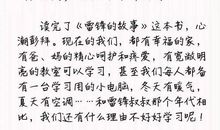 读完了《雷锋的故事》这本书，心
潮彭拌。现在的我们，都有幸福的家，
有爸、妈的精心呵护和疼爱，有宽敞明
亮的教室可以学习，甚至我们每人都备
有一台学习用的小电脑，冬天有暖气，
夏天有空调……和雷锋叔叔那个年代相
比，我们还有什么理由不好好学习呢！